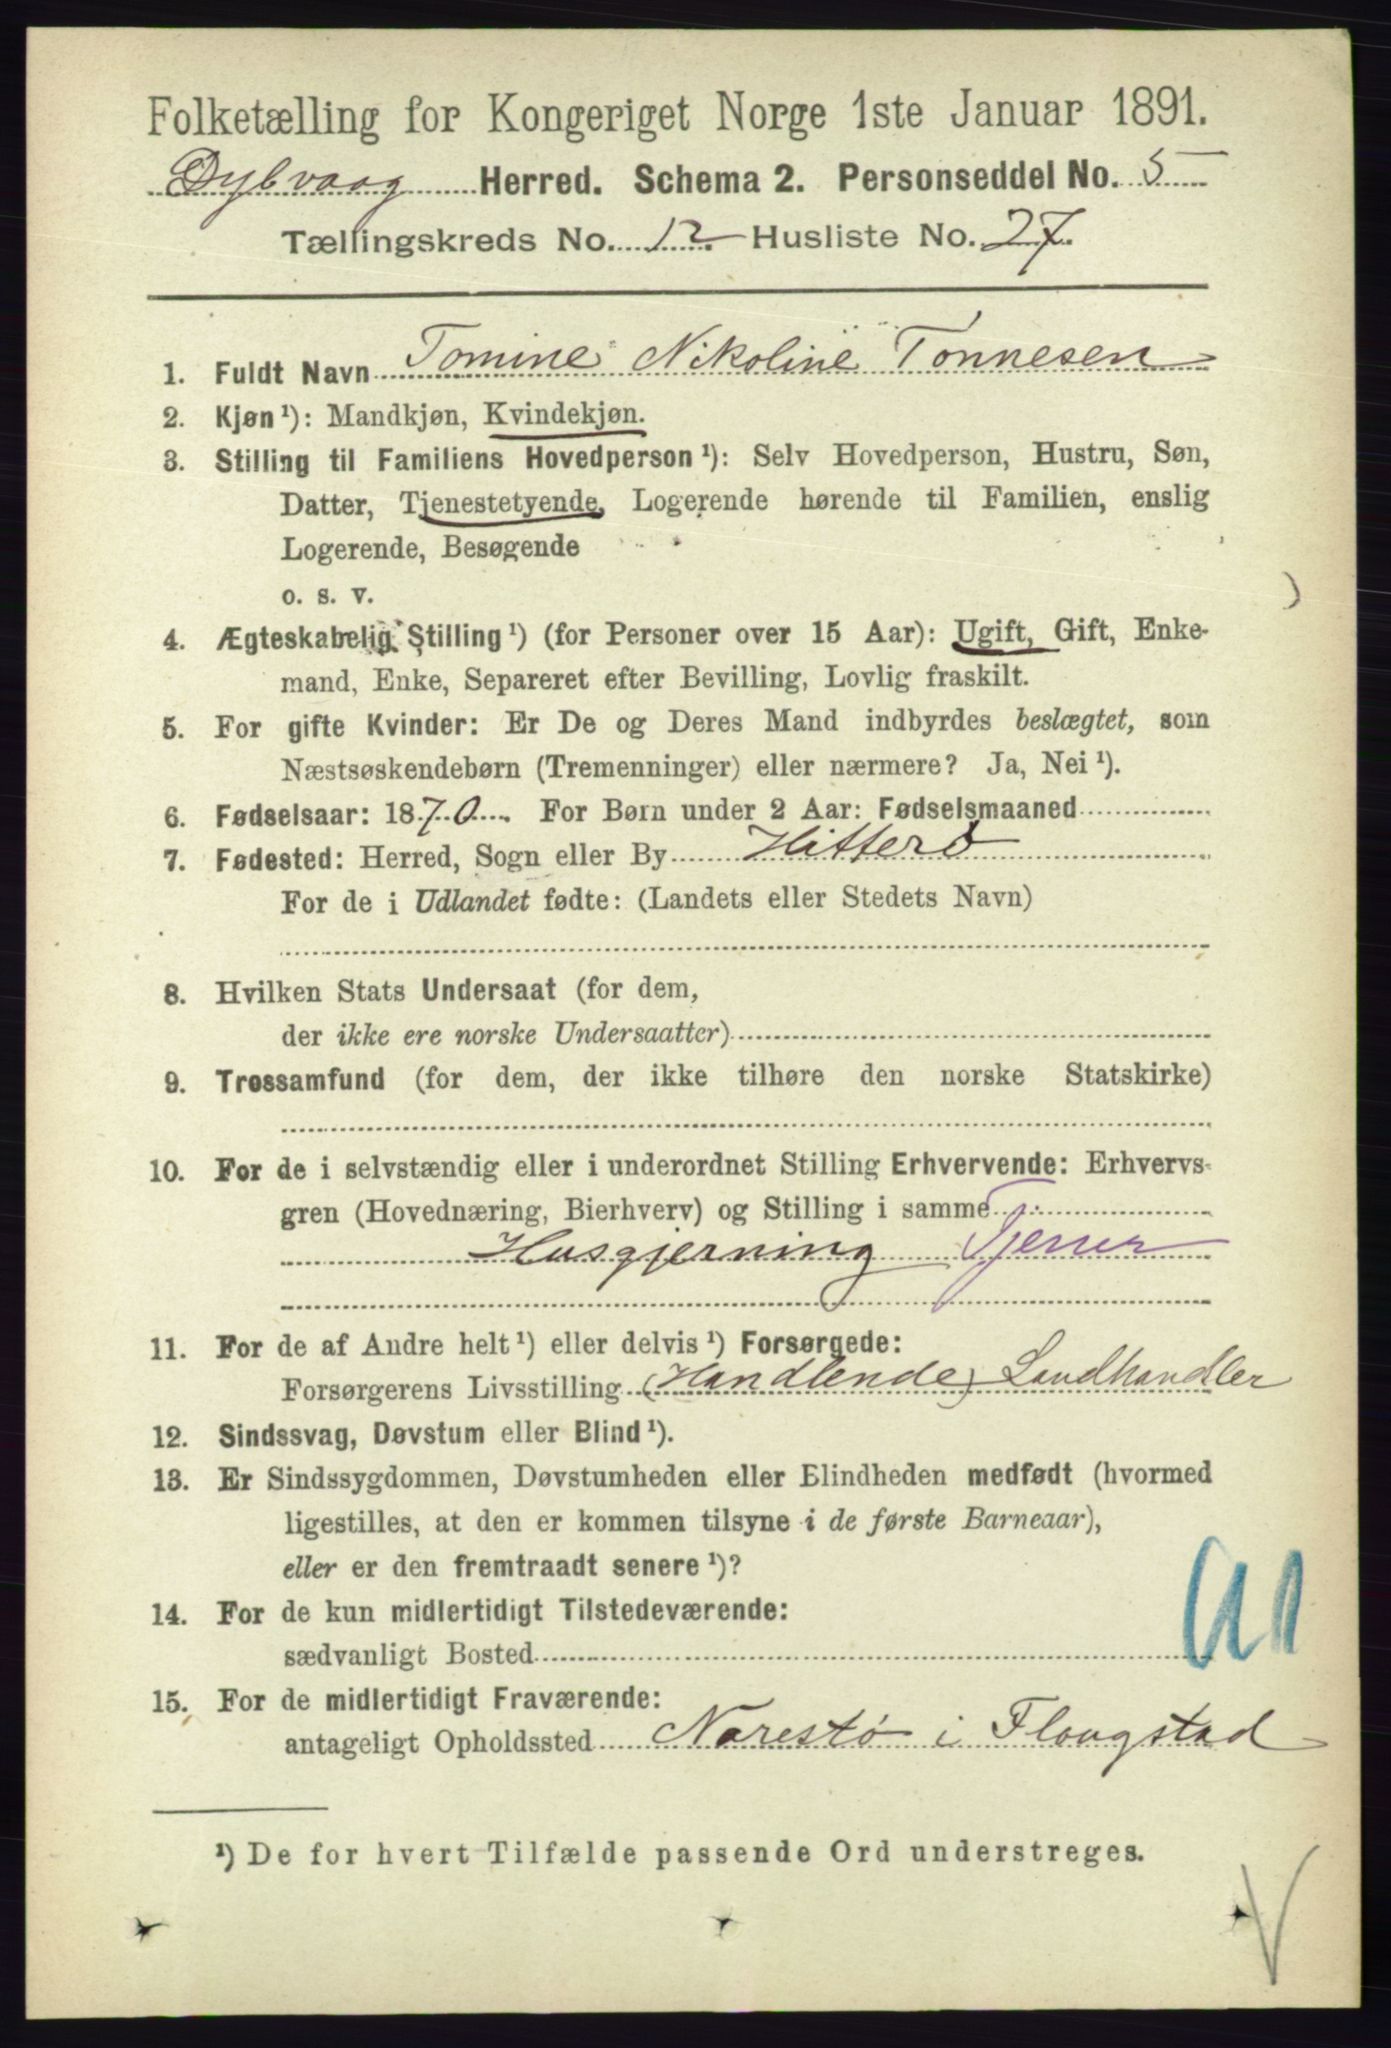 Folketælling for Kongeriget Norge 1ste Januar 1891.
Dybvaag Herred. Schema 2. Personseddel No. 5
Tællingskreds No. 12. Husliste No. 27.
1. Fuldt Navn Tomine Nikoline Tonnesen
2. Kjøn¹): Mandkjøn, Kvindekjøn.
3. Stilling til Familiens Hovedperson¹): Selv Hovedperson, Hustru, Søn,
Datter, Tjenestetyende, Logerende hørende til Familien, enslig
Logerende, Besøgende
o. s. v.
4. Ægteskabelig Stilling¹) (for Personer over 15 Aar): Ugift, Gift, Enke-
mand, Enke, Separeret efter Bevilling, Lovlig fraskilt.
5. For gifte Kvinder: Er De og Deres Mand indbyrdes beslægtet, som
Næstsøskendebørn (Tremenninger) eller nærmere? Ja, Nei¹).
6. Fødselsaar: 1870. For Børn under 2 Aar: Fødselsmaaned
7. Fødested: Herred, Sogn eller By Hitterö
For de i Udlandet fødte: (Landets eller Stedets Navn)
8. Hvilken Stats Undersaat (for dem,
der ikke ere norske Undersaatter)
9. Trossamfund (for dem, der ikke tilhøre den norske Statskirke)
10. For de i selvstændig eller i underordnet Stilling Erhvervende: Erhvervs-
gren (Hovednæring, Bierhverv) og Stilling i samme
Husgjerning Tjener
11. For de af Andre helt¹) eller delvis¹) Forsørgede:
Forsørgerens Livsstilling (Handlende) Landhandler
12. Sindssvag, Døvstum eller Blind¹).
13. Er Sindssygdommen, Døvstumheden eller Blindheden medfødt (hvormed
ligestilles, at den er kommen tilsyne i de første Barneaar),
eller er den fremtraadt senere¹)?
14. For de kun midlertidigt Tilstedeværende:
sædvanligt Bosted
15. For de midlertidigt Fraværende:
antageligt Opholdssted Narestö i Flougstad
¹) De for hvert Tilfælde passende Ord understreges.